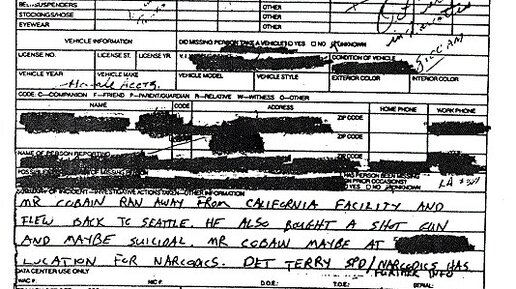 BELT/SUSPENDERS OTHER
STOCKINGS/HOSE OTHER
EYEWEAR OTHER
VEHICLE INFORMATION DID MISSING PERSON TAKE A VEHICLE? YES NO UNKNOWN
LICENSE NO. LICENSE ST. LICENSE YR CONDITION OF VEHICLE
VEHICLE YEAR VEHICLE MAKE VEHICLE MODEL VEHICLE STYLE EXTERIOR COLOR INTERIOR COLOR
CODE: C—COMPANION F—FRIEND P—PARENT/GUARDIAN R—RELATIVE W—WITNESS O—OTHER
NAME CODE ADDRESS HOME PHONE WORK PHONE
ZIP CODE
ZIP CODE
NAME OF PERSON REPORTING ZIP CODE
HAS PERSON BEEN MISSING
PRIOR OCCASION? YES NO UNKNOWN
SUMMARY OF INCIDENT—INVESTIGATIVE ACTIONS TAKEN—OTHER INFORMATION
MR COBAIN RAN AWAY FROM CALIFORNIA FACILITY AND
FLEW BACK TO SEATTLE. HE ALSO BOUGHT A SHOT GUN
AND MAYBE SUICIDAL. MR COBAIN MAYBE AT
LOCATION FOR NARCODICS. DET TERRY SPD/NARCODICS HAS
FURTHER INFO
DATA CENTER USE ONLY
WAC #: NIC #: D.O.E.: T.O.E.: SERIAL: